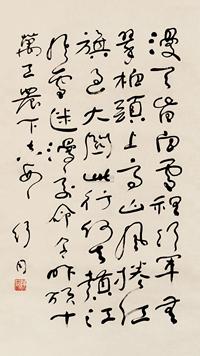 漫天皆白雪裡行军無
翠柏頭上高山風捲红
旗过大關此行何去贛江
風雪迷漫處命令昨颁十
萬工農下吉安
舒同